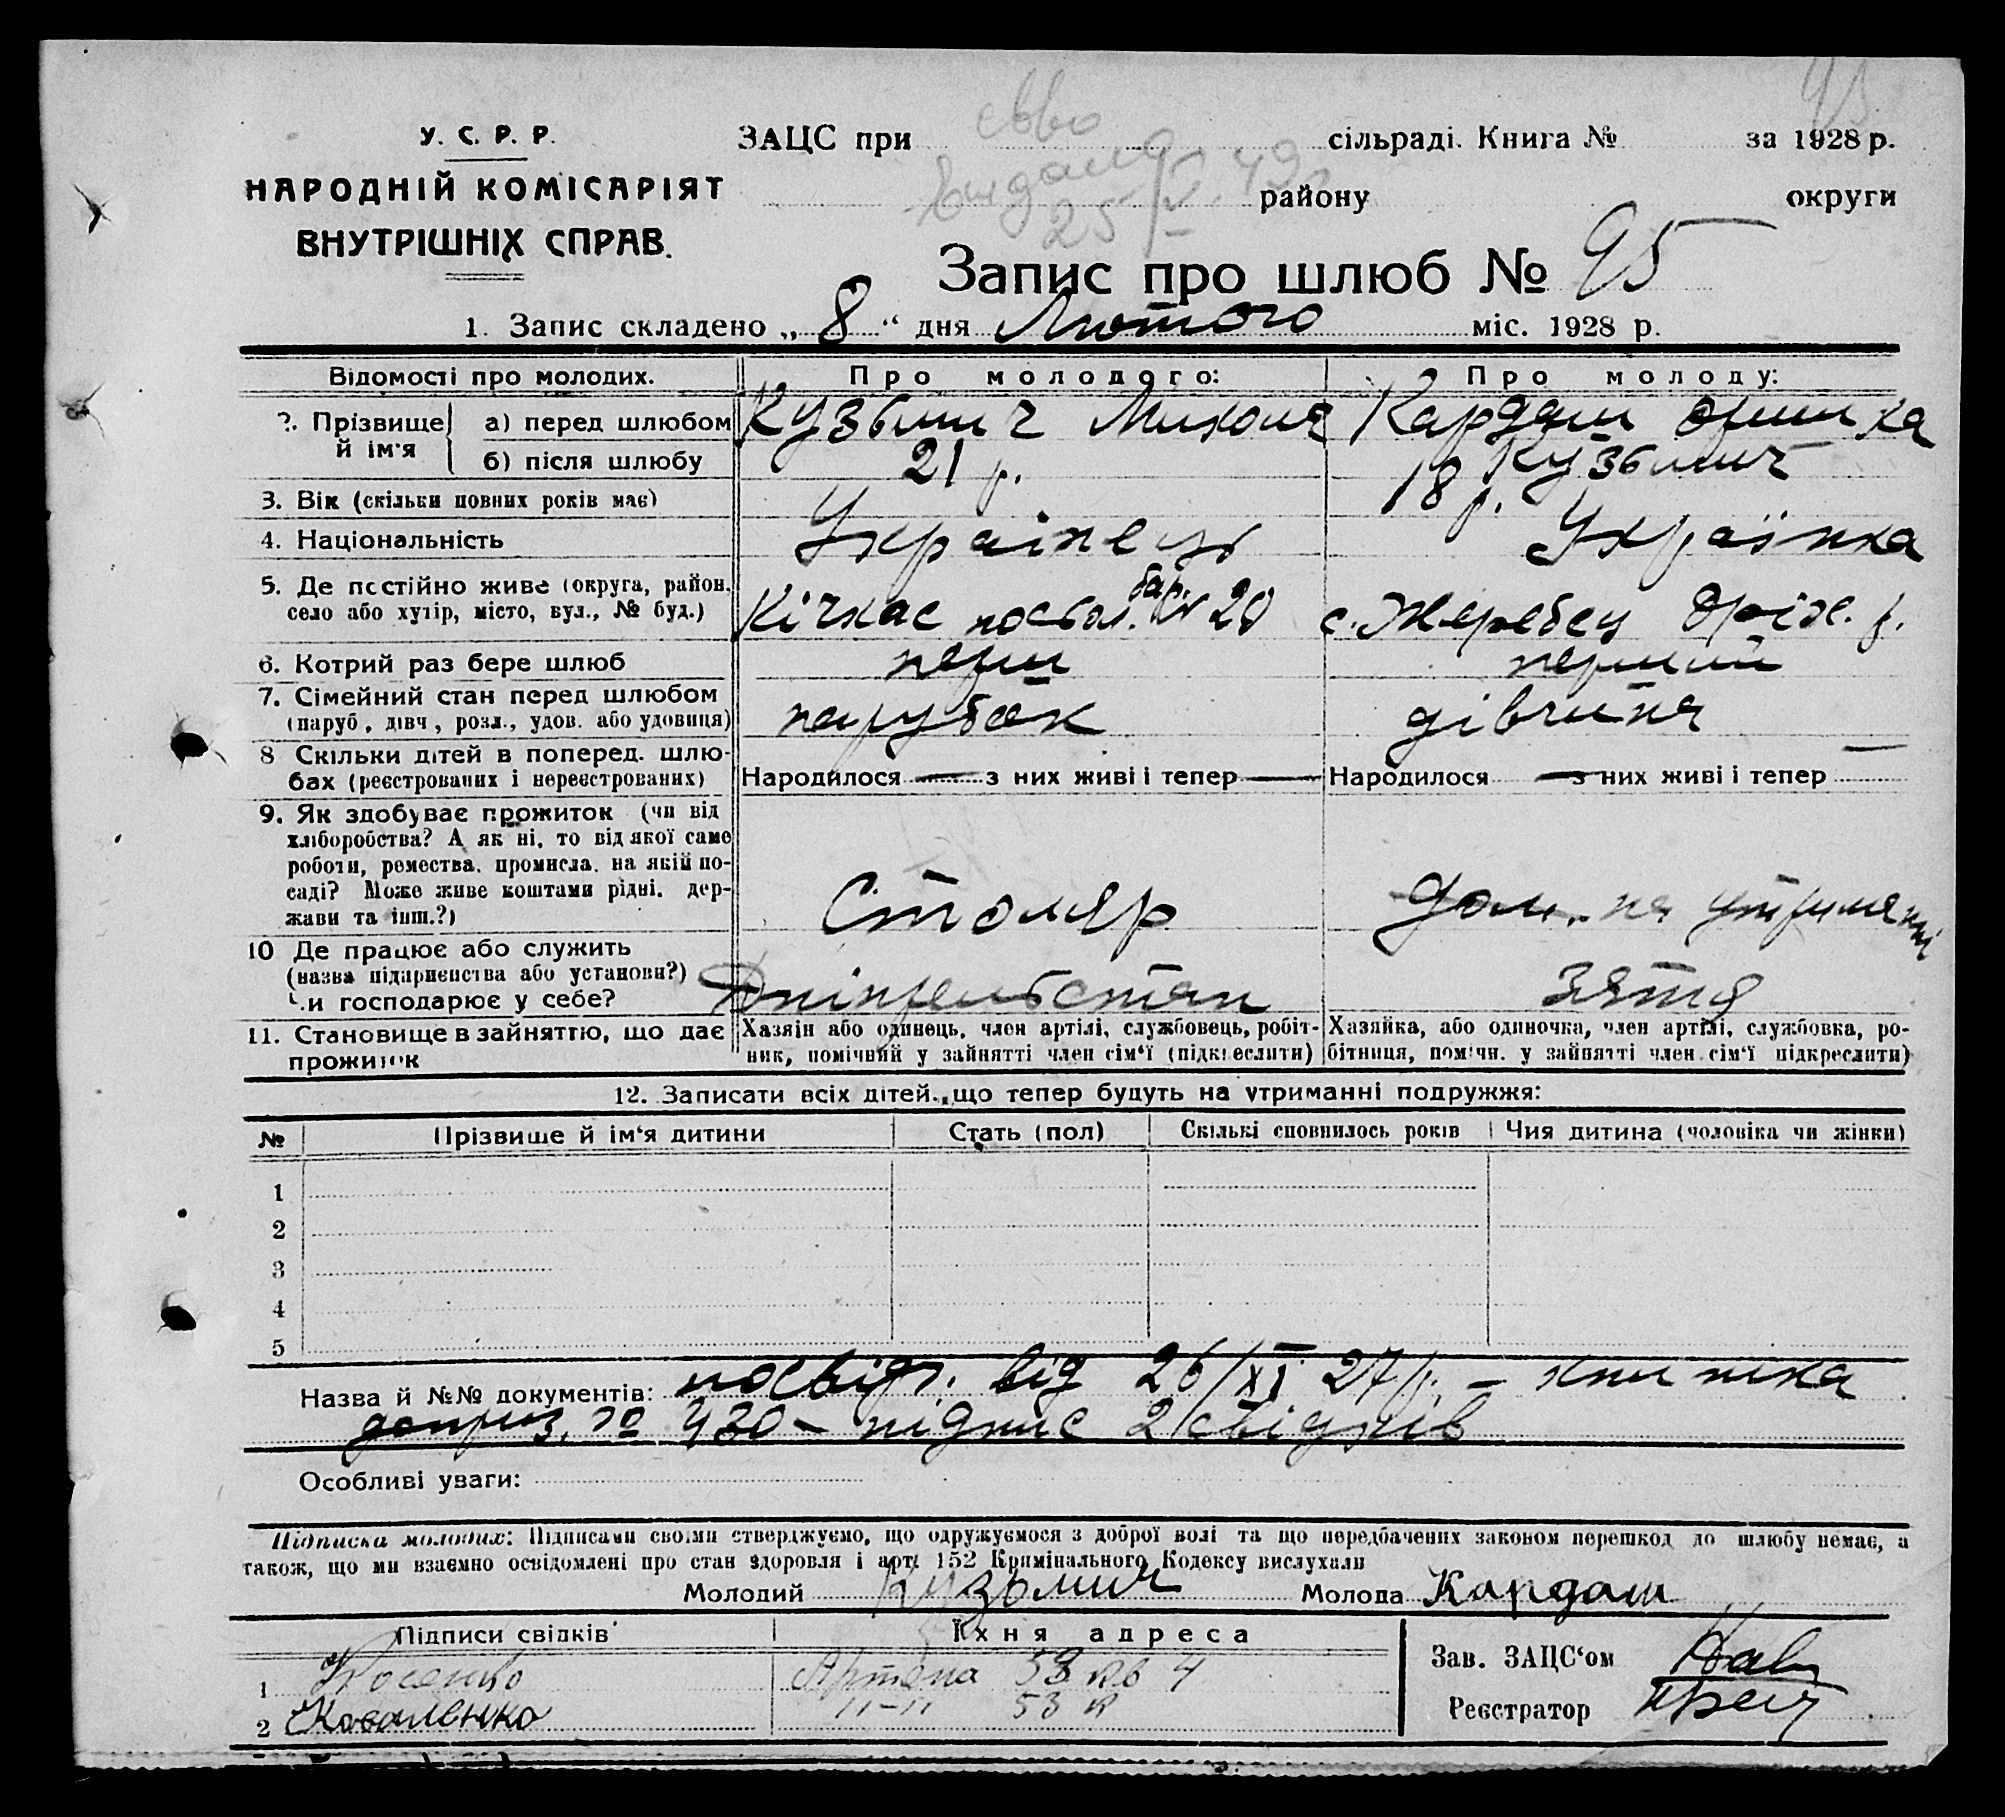 У. С. Р. Р.
НАРОДНІЙ КОМІСАРІЯТ
ВНУТРІШНІХ СПРАВ.
ЗАЦС при сільраді. Книга № за 1928 р.
району округи
25/V. 49 р
Запис про шлюб № 95
1. Запис складено „ 8 “ дня Лютого міс. 1928 р.
Відомості про молодих. Про молодого: Про молоду:
2. Прізвище й ім'я а) перед шлюбом Кузьмич Микола Кардаш
б) після шлюбу Кузьмич
3. Вік (скільки повних років має) 21 р. 18 р.
4. Національність Українець Українка
5. Де постійно живе (округа, район, село або хутір, місто, вул., № буд.) Кічкас посьол. бар № 20 с. Жеребец Оріх. р.
6. Котрий раз бере шлюб перш перший
7. Сімейний стан перед шлюбом (паруб., дівч., розл., удов. або удовиця) парубок дівчина
8 Скільки дітей в поперед. шлюбах (реєстрованих і нереєстрованих) Народилося — з них живі і тепер — Народилося — з них живі і тепер —
9. Як здобуває прожиток (чи від
хліборобства? А як ні, то від якої саме
роботи, ремества, промисла, на якій по-
саді? Може живе коштами рідні, дер-
жави та інш.?) Столяр Дом. на утриманні
10 Де працює або служить
(назва підприємства або установи?)
Чи господарює у себе? Дніпрельстан зятя
11. Становище в зайняттю, що дає прожиток
Хазяін або одинець, член артілі, службовець, робіт-
ник, помічний у зайнятті член сім'ї (підкреслити)
Хазяйка, або одиночка, член артілі, службовка, ро-
бітниця, помічн. у зайнятті член сім'ї підкреслити)
12. Записати всіх дітей, що тепер будуть на утриманні подружжя:
№ Прізвище й ім'я дитини Стать (пол) Скількі сповнилось років Чия дитина (чоловіка чи жінки)
1
2
3
4
5
Назва й №№ документів: посвідч. від 26/XI 27 р. – книжка
доприз. № 430 – підпис 2 свідків
Особливі уваги:
Підписка молодих: Підписами своїми стверджуємо, що одружуємося з доброї волі та що передбачених законом перешкод до шлюбу немає, а
також, що ми взаємно освідомлені про стан здоровля і арт. 152 Кримінального Кодексу вислухали
Молодий Кузьмич Молода Кардаш
Підписи свідків Їхня адреса
1 Косенко Артема 53 кв 4
2 Коваленко 11–11 53 к
Зав. ЗАЦС'ом
Реєстратор